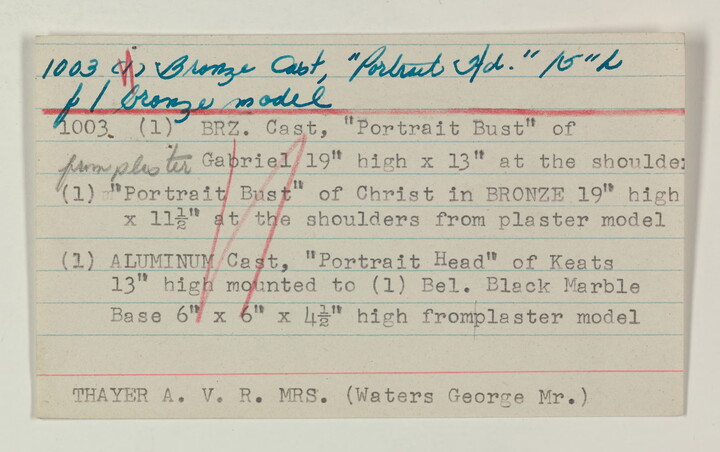 1003 (1) Bronze Cast, "Portrait Hd." 15" h
f/1 bronze model
1003. (1) BRZ. Cast, "Portrait Bust" of
from plaster Gabriel 19" high x 13" at the shoulde
(1) "Portrait Bust" of Christ in BRONZE 19" high
x 11½" at the shoulders from plaster model
(1) ALUMINUM Cast, "Portrait Head" of Keats
13" high mounted to (1) Bel. Black Marble
Base 6" x 6" x 4½" high fromplaster model
THAYER A. V. R. MRS. (Waters George Mr.)